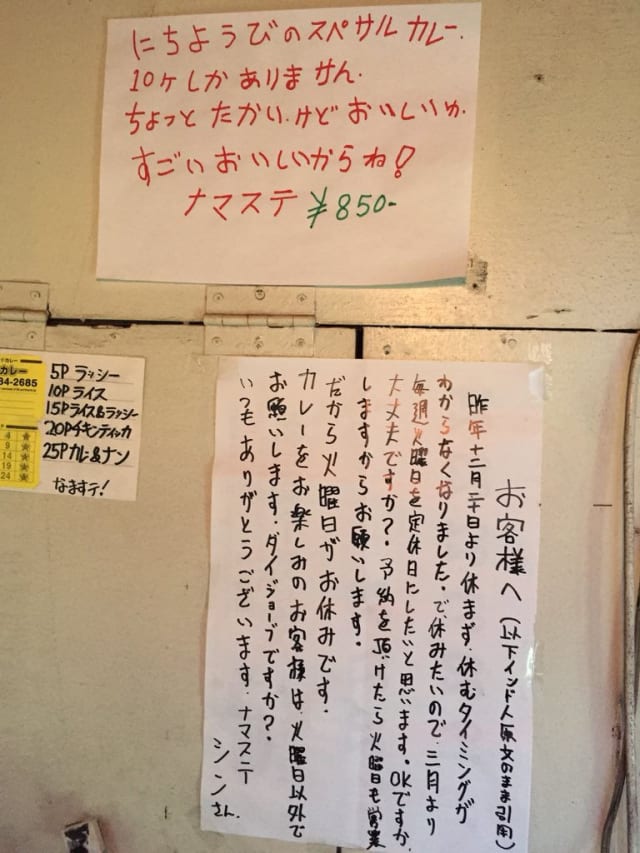 にちようびのスペサルカレー.
10ケしかありません.
ちょっとたかい.けどおいしいゅ.
すごいおいしいからね!
ナマステ ¥850-
カレー
34-2685
4
9
14
19
24
5P ラッシー
10P ライス
15Pライス&ラッシー
20Pチキンティッカ
25Pカレー&ナン
なますテ!
お客様へ(以下インド人原文のまま引用)
昨年十二月二十日より休まず.休むタイミングが
わからなくなりました.で休みたいので.三月より
毎週火曜日を定休日にしたいと思います。OKですか.
大丈夫ですか?.予約を頂けたら火曜日も営業
しますからお願いします.
だから火曜日がお休みです.
カレーをお楽しみのお客様は.火曜日以外で
お願いします.ダイジョーブですか?.
いつもありがとうございます.ナマステ
シンさん.